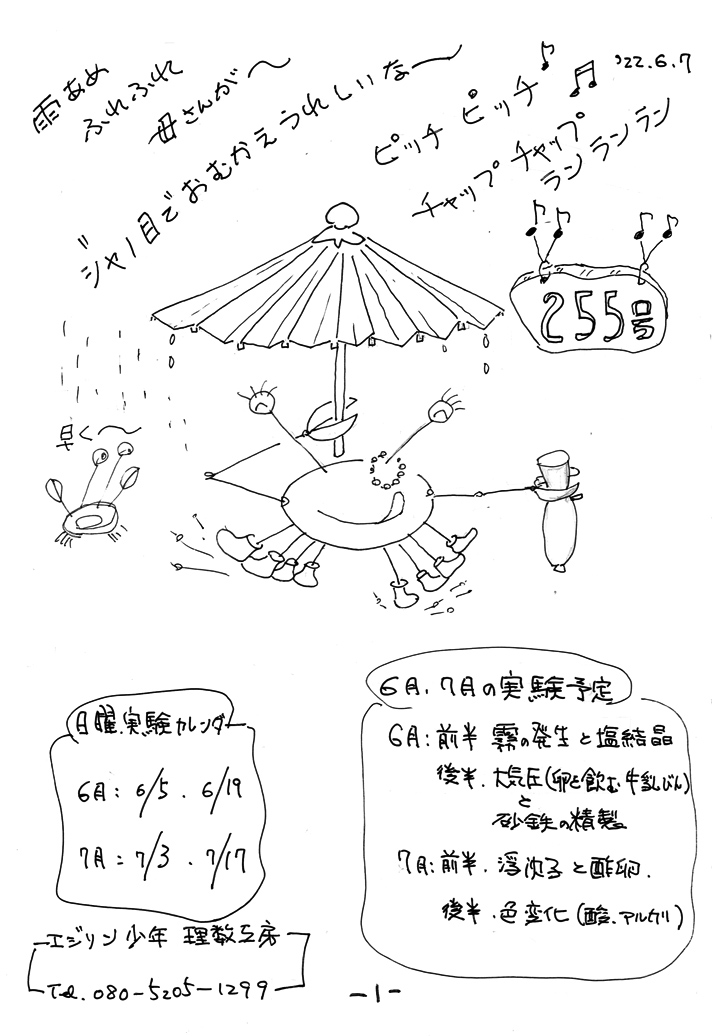 '22.6.7
雨あめ
ふれふれ
母さんが〜
ジャノ目でおむかえうれしいなー
ピッチ ピッチ
チャップ チャップ
ラン ラン ラン
255号
早く〜
日曜.実験カレンダー
6月: 6/5 . 6/19
7月: 7/3 . 7/17
エジソン少年 理数工房
Tel. 080-5205-1299
6月.7月の実験予定
6月:前半 霧の発生と塩結晶
後半.大気圧(卵を飲む牛乳びん)
と
砂鉄の精製
7月:前半.浮沈子と酢卵.
後半.色変化(酸.アルカリ)
-1-